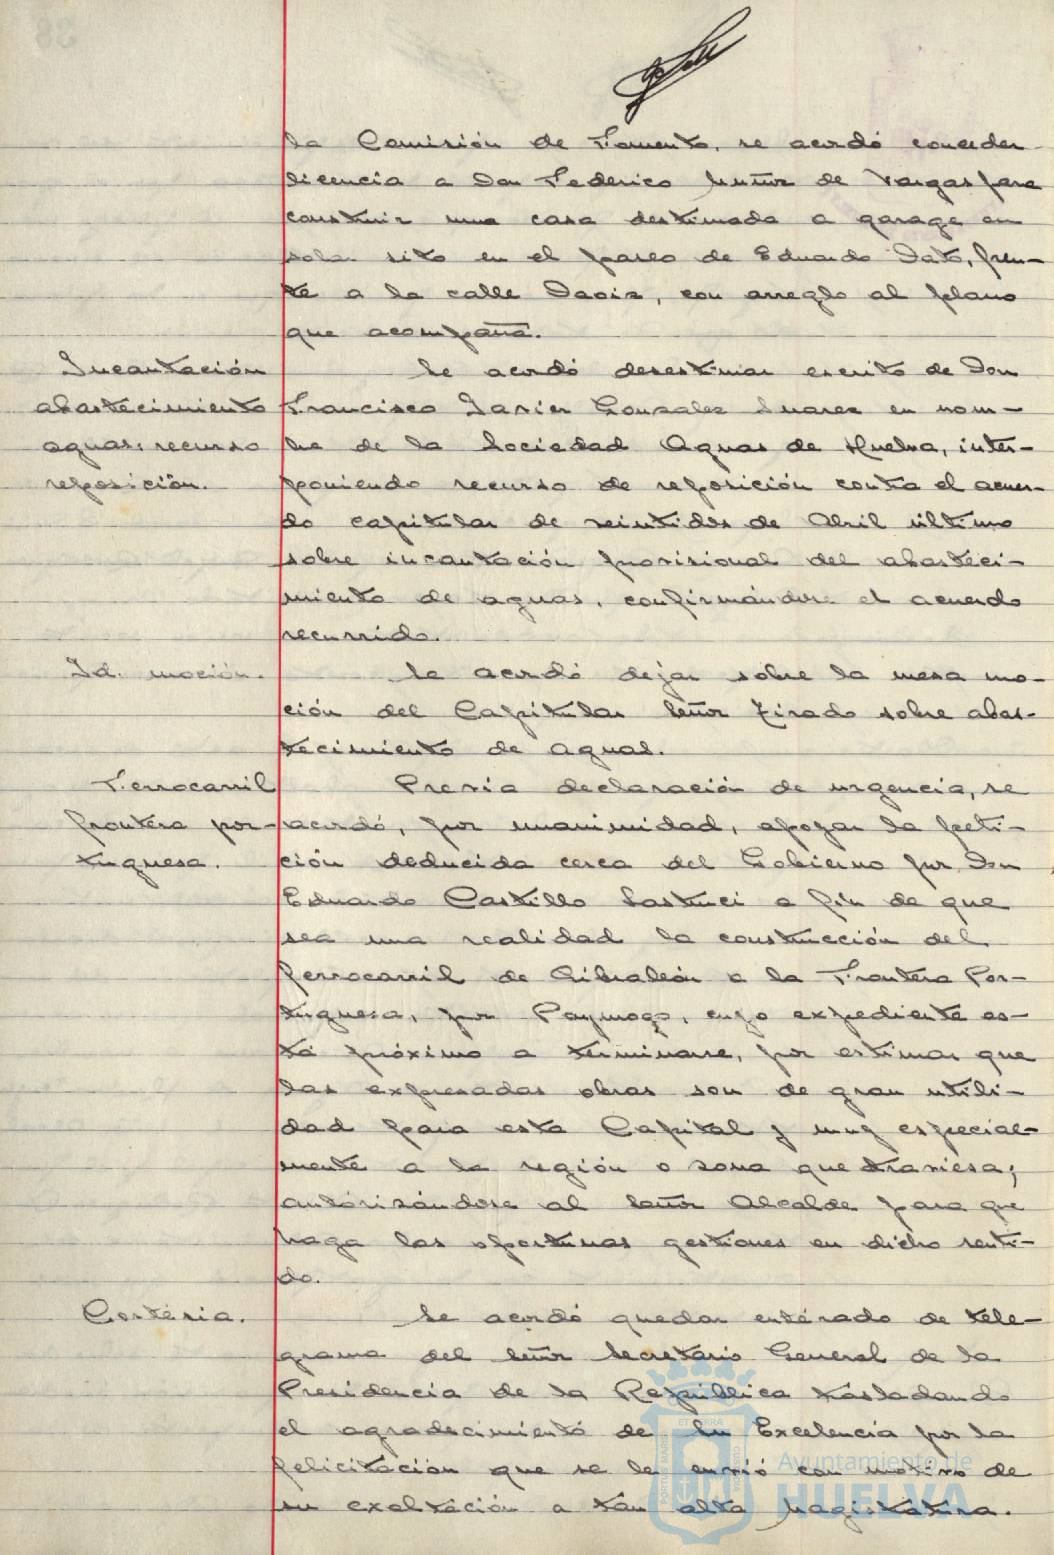 la Comisión de Fomento, se acordó conceder
licencia a Don Federico Muñoz de Vargas para
construir una casa destinada a garage en
solar sito en el paseo de Eduardo Dato, fren-
te a la calle Daoiz, con arreglo al plano
que acompaña.
Incautación
abastecimiento
aguas, recurso
reposición.
Se acordó desestimar escrito de Don
Francisco Javier Gonzalez Suarez en nom-
bre de la Sociedad Aguas de Huelva, inter-
poniendo recurso de reposición contra el acuer-
do capitular de veintidos de Abril último
sobre incautación provisional del abasteci-
miento de aguas, confirmándose el acuerdo
recurrido.
Id. moción.
Se acordó dejar sobre la mesa mo-
ción del Capitular Señor Tirado sobre abas-
tecimiento de aguas.
Ferrocarril
frontera por-
tuguesa.
Previa declaración de urgencia, se
acordó, por unanimidad, apoyar la peti-
ción deducida cerca del Gobierno por Don
Eduardo Castillo a fin de que
sea una realidad la construcción del
ferrocarril de Gibraleón a la Frontera Por-
tuguesa, por Paymogo, cuyo expediente es-
tá próximo a terminarse, por estimar que
las expresadas obras son de gran utili-
dad para esta Capital y muy especial-
mente a la región o zona que traviesa;
autorizándose al Señor Alcalde para que
haga las oportunas gestiones en dicho senti-
do.
Cortesia.
Se acordó quedar enterado de tele-
grama del Señor Secretario General de la
Presidencia de la República trasladando
el agradecimiento de Su Excelencia por la
felicitación que se le envió con motivo de
su exaltación a tan alta Magistratura.
Ayuntamiento de
HUELVA